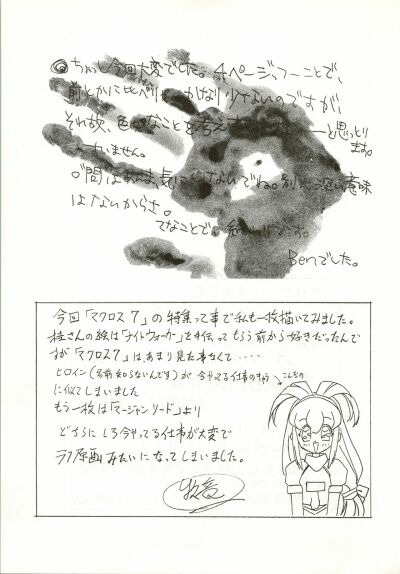 ◎ちょっと今回大変でした。4ページ、つーことで、
前とかに比べりゃ、かなり少ないのですが、
それ故、色んなことを考え
と思っとり
ます。
いません。
間は
気に しないでね。別に深い意味
はないからさ。
てなことで、
です。
Benでした。
今回「マクロス7」の特集って事で私も一枚描いてみました。
桂さんの絵は「ナイトウォーカー」を手伝ってもらう前から好きだったんで
すが「マクロス7」は、あまり見た事なくて‥‥
ヒロイン(名前知らないんです)が今やってる仕事のキャラ
こんなの
に似てしまいました
もう一枚は「マージャンリード」より
どちらにしろ今やってる仕事が大変で
ラフ原画みたいになってしまいました。